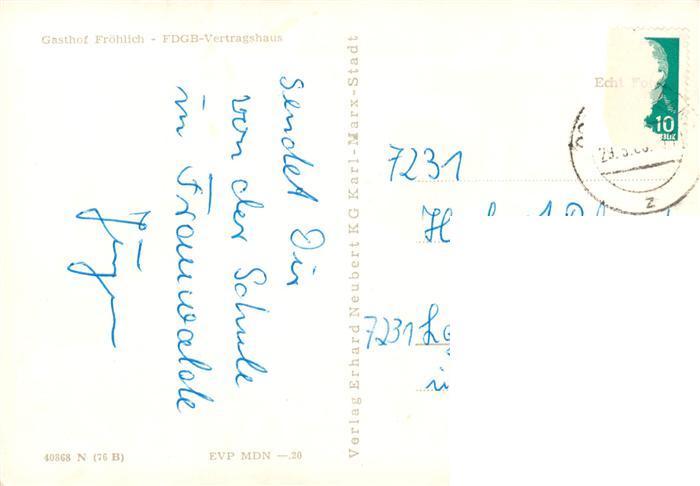 Gasthof Fröhlich - FDGB-Vertragshaus
sendet Dir
von der Schule
in Frauwalde
Jürgen
40868 N (76 B)
EVP MDN —.20
Verlag Erhard Neubert KG Karl-Marx-Stadt
Echt
10
7231
7231